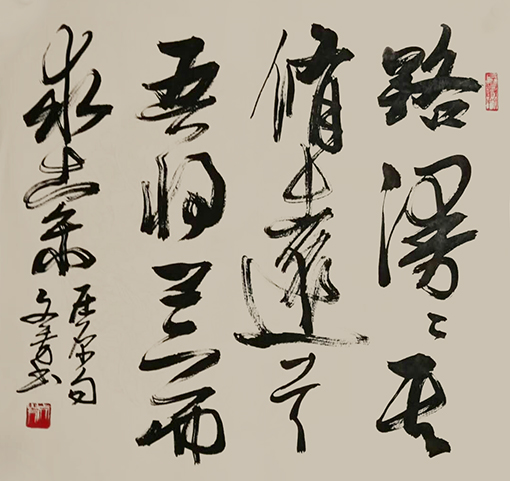 路漫漫其
脩遠兮
吾将上下而
求索
屈原句
文
书